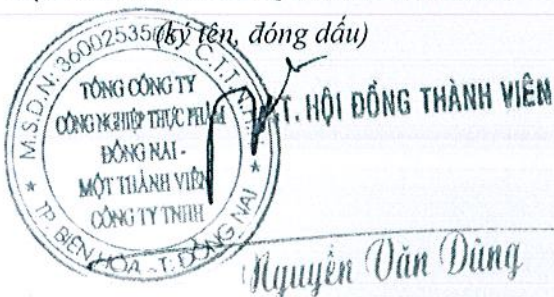 (ký tên, đóng dấu)
M.S.D.N: C.T.T.N.H.H
TỔNG CÔNG TY
CÔNG NGHIỆP THỰC PHẨM
ĐỒNG NAI -
MỘT THÀNH VIÊN
CÔNG TY TNHH
★ TP. BIÊN HÒA - T. ĐỒNG NAI ★
T. HỘI ĐỒNG THÀNH VIÊN
Nguyễn Văn Dũng